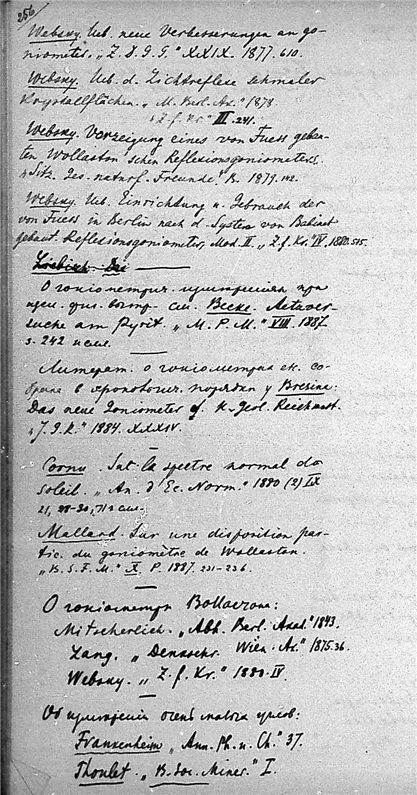 256
Websky. Ueb. neue Verbesserungen an go-
niometer. „Z. d. G. G." XXIX. 1877. 610.
Websky. Ueb. d. Lichtreflexe schmaler
Krystallflächen. „M. Berl. Ak." 1878.
„Z. f. Kr." III. 241.
Websky. Vorzeigung eines von Fuess gebau-
ten Wollaston'schen Reflexionsgoniometers.
„Sitz. Ges. naturf. Freunde." B. 1879.
Websky. Ueb. Einrichtung u. Gebrauch der
von Fuess in Berlin nach d. System von Babinet
gebaut. Reflexionsgoniometer, Mod. II. „Z. f. Kr." IV. 1880. 545.
О гониометрич. при
см. Becke. Aetzver-
suche am Pyrit. „M. P. M." VIII. 1887.
s. 242
Литерат. о гониометрия со-
брана в хронологич. порядке у Brezina:
Das neue Goniometer d. k. Geol. Reichsanst.
„J. G. R." 1884. XXXIV.
Cornu. Sur le spectre normal du
Soleil. „An. d'Ec. Norm." 1880 (2) IX
21,
Mallard. Sur une disposition par-
tic. du goniomètre de Wollaston.
„B. S. F. M." X. P. 1887. 231-236.
О гониометри Волластона:
Mitscherlich. „Abh. Berl. Akad." 1843.
Lang. „Denkschr. Wien. Ak." 1875. 36.
Websky. „Z. f. Kr." 1880. IV.
Об очень углов:
Frankenheim „Ann. Ph. u. Ch." 37.
Thoulet. „B. Soc. Miner." I.